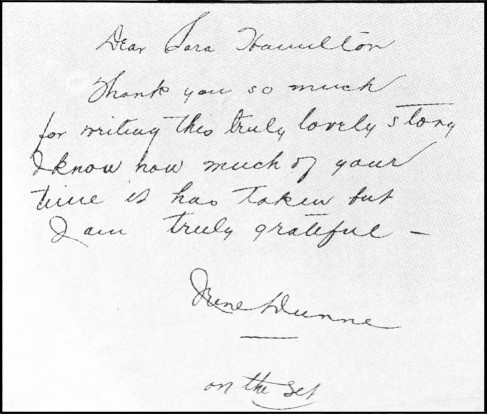 Dear Sara Hamilton
Thank you so much
for writing this truly lovely story
I know how much of your
time it has taken but
I am truly grateful –
Irene Dunne
on the set